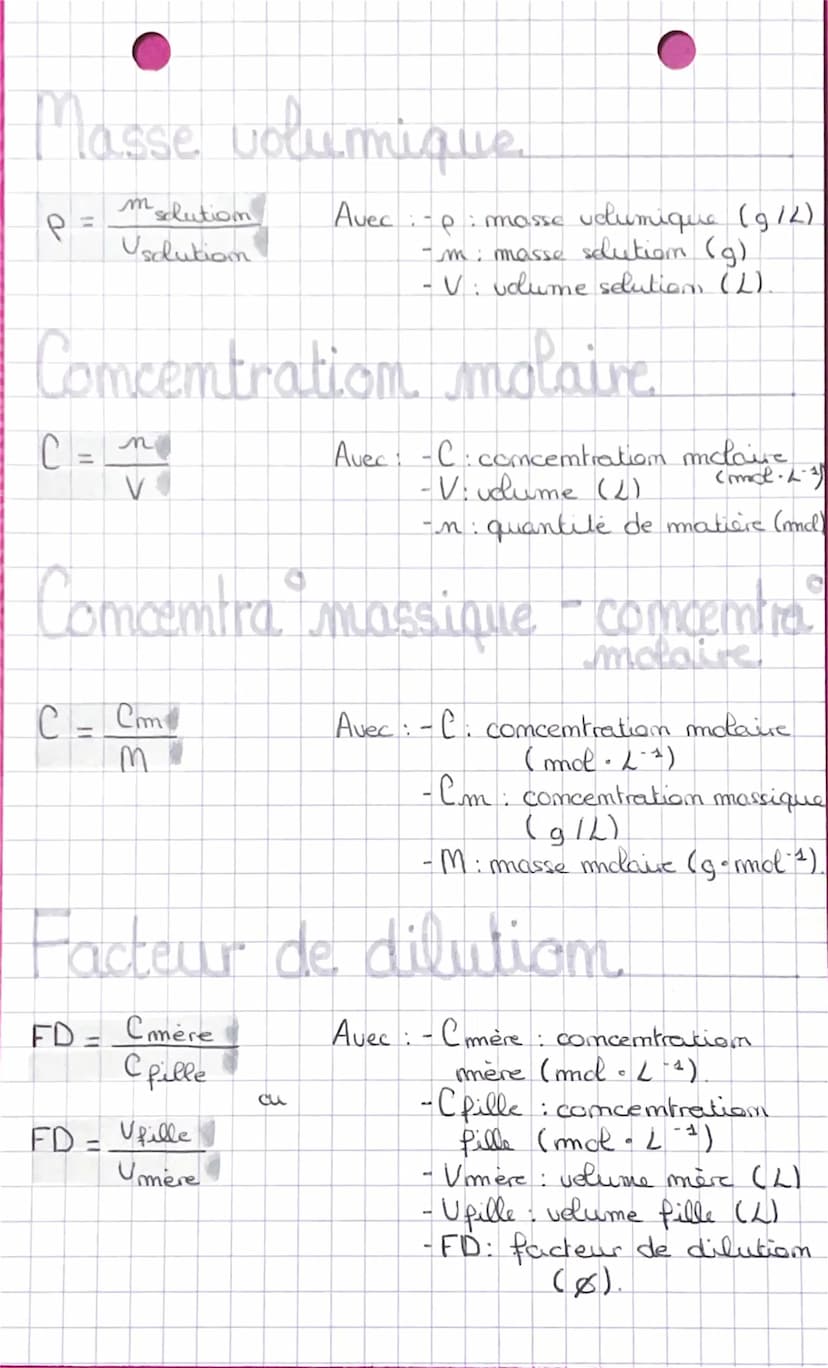 Masse volumique
ρ = m solution / V solution
Avec : - ρ : masse volumique (g/L)
- m : masse solution (g)
- V : volume solution (L).
Concentration molaire
C = n / V
Avec : - C : concentration molaire (mol · L⁻¹)
- V : volume (L)
- n : quantité de matière (mol)
Concentra° massique - concentra°
molaire
C = Cm / M
Avec : - C : concentration molaire
(mol · L⁻¹)
- Cm : concentration massique
(g/L)
- M : masse molaire (g · mol⁻¹).
Facteur de dilution
FD = C mère / C fille
ou
FD = V fille / V mère
Avec : - C mère : concentration
mère (mol · L⁻¹).
- C fille : concentration
fille (mol · L⁻¹)
- V mère : volume mère (L)
- V fille : volume fille (L)
- FD : facteur de dilution
(Ø).